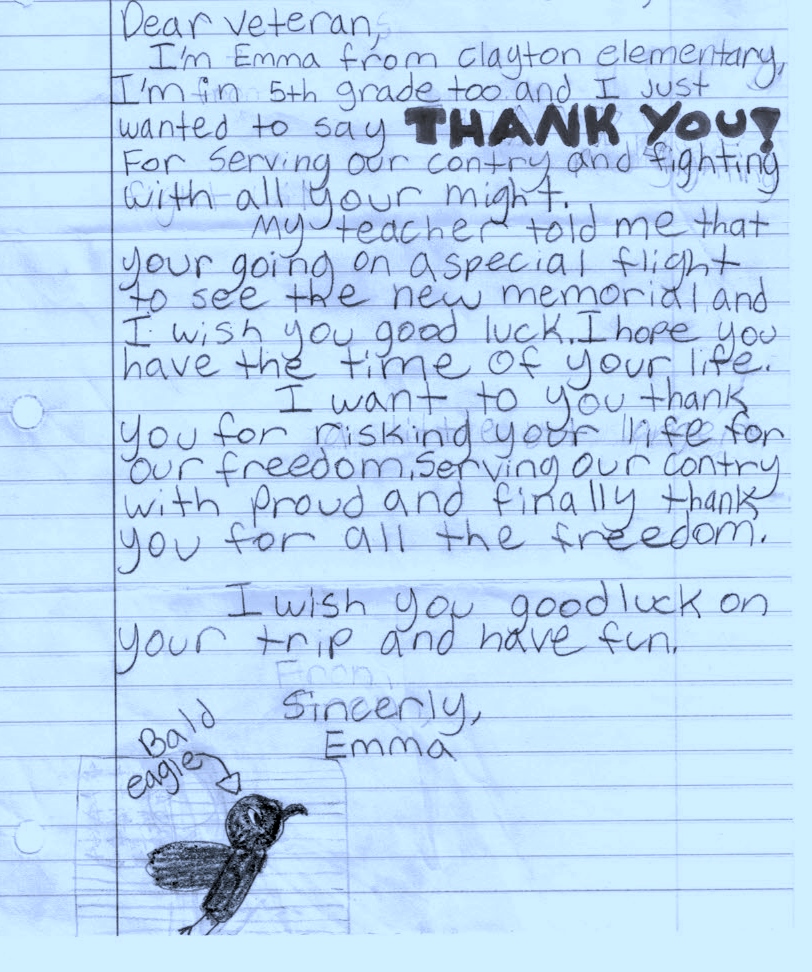 Dear veteran,
I'm Emma from clayton elementary,
I'm in 5th grade too and I just
wanted to say THANK YOU!
For serving our contry and fighting
with all your might.
My teacher told me that
your going on a special flight
to see the new memorial and
I wish you good luck. I hope you
have the time of your life.
I want to you thank
you for risking your life for
our freedom, Serving our contry
with proud and finally thank
you for all the freedom.
I wish you good luck on
your trip and have fun.
From,
Sincerly,
Emma
Bald
eagle